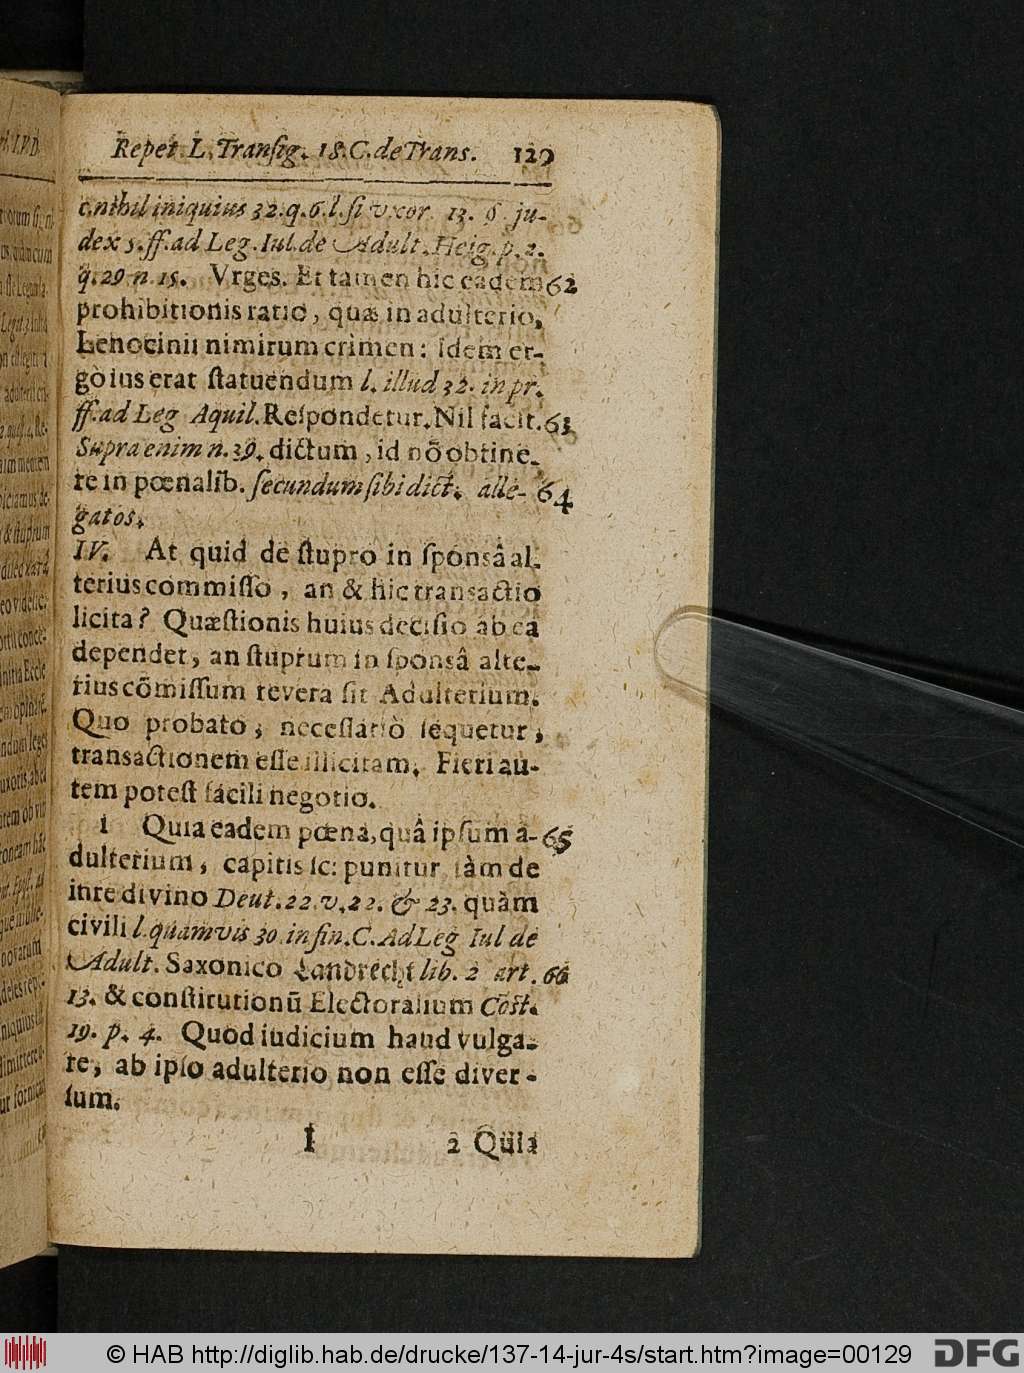 Repet. L. Tranſig. 18. C. de Trans. 129
c. nihil iniquius 32. q. 6. l. ſi vxor. 13. §. ju-
dex 5. ff. ad Leg. Iul. de Adult. Heig. p. 2.
q. 29 n. 15. Vrges. Et tamen hic eadem 62
prohibitionis ratio, quæ in adulterio,
Lenocinii nimirum crimen: idem er-
gò ius erat ſtatuendum l. illud 32. in pr.
ff. ad Leg Aquil. Reſpondetur. Nil facit. 63
Supra enim n. 39. dictum, id nõ obtine-
re in pœnalib. ſecundum ſibi dict. alle- 64
gatos.
IV. At quid de ſtupro in ſponsâ al-
terius commiſſo, an & hic transactio
licita? Quæſtionis huius deciſio ab ea
dependet, an ſtuprum in ſponsâ alte-
rius cõmiſſum revera ſit Adulterium.
Quo probato, neceſſariò ſequetur,
transactionem eſſe illicitam. Fieri au-
tem poteſt facili negotio.
1 Quia eadem pœna, quâ ipſum a- 65
dulterium, capitis ſc: punitur tàm de
iure divino Deut. 22. v. 22. & 23. quàm
civili l. quamvis 30. in fin. C. Ad Leg Iul de
Adult. Saxonico Landrecht lib. 2 art. 66
13. & conſtitutionũ Electoralium Cõſt.
19. p. 4. Quod iudicium haud vulga-
re, ab ipſo adulterio non eſſe diver-
ſum.
I 2 Quia
© HAB http://diglib.hab.de/drucke/137-14-jur-4s/start.htm?image=00129 DFG